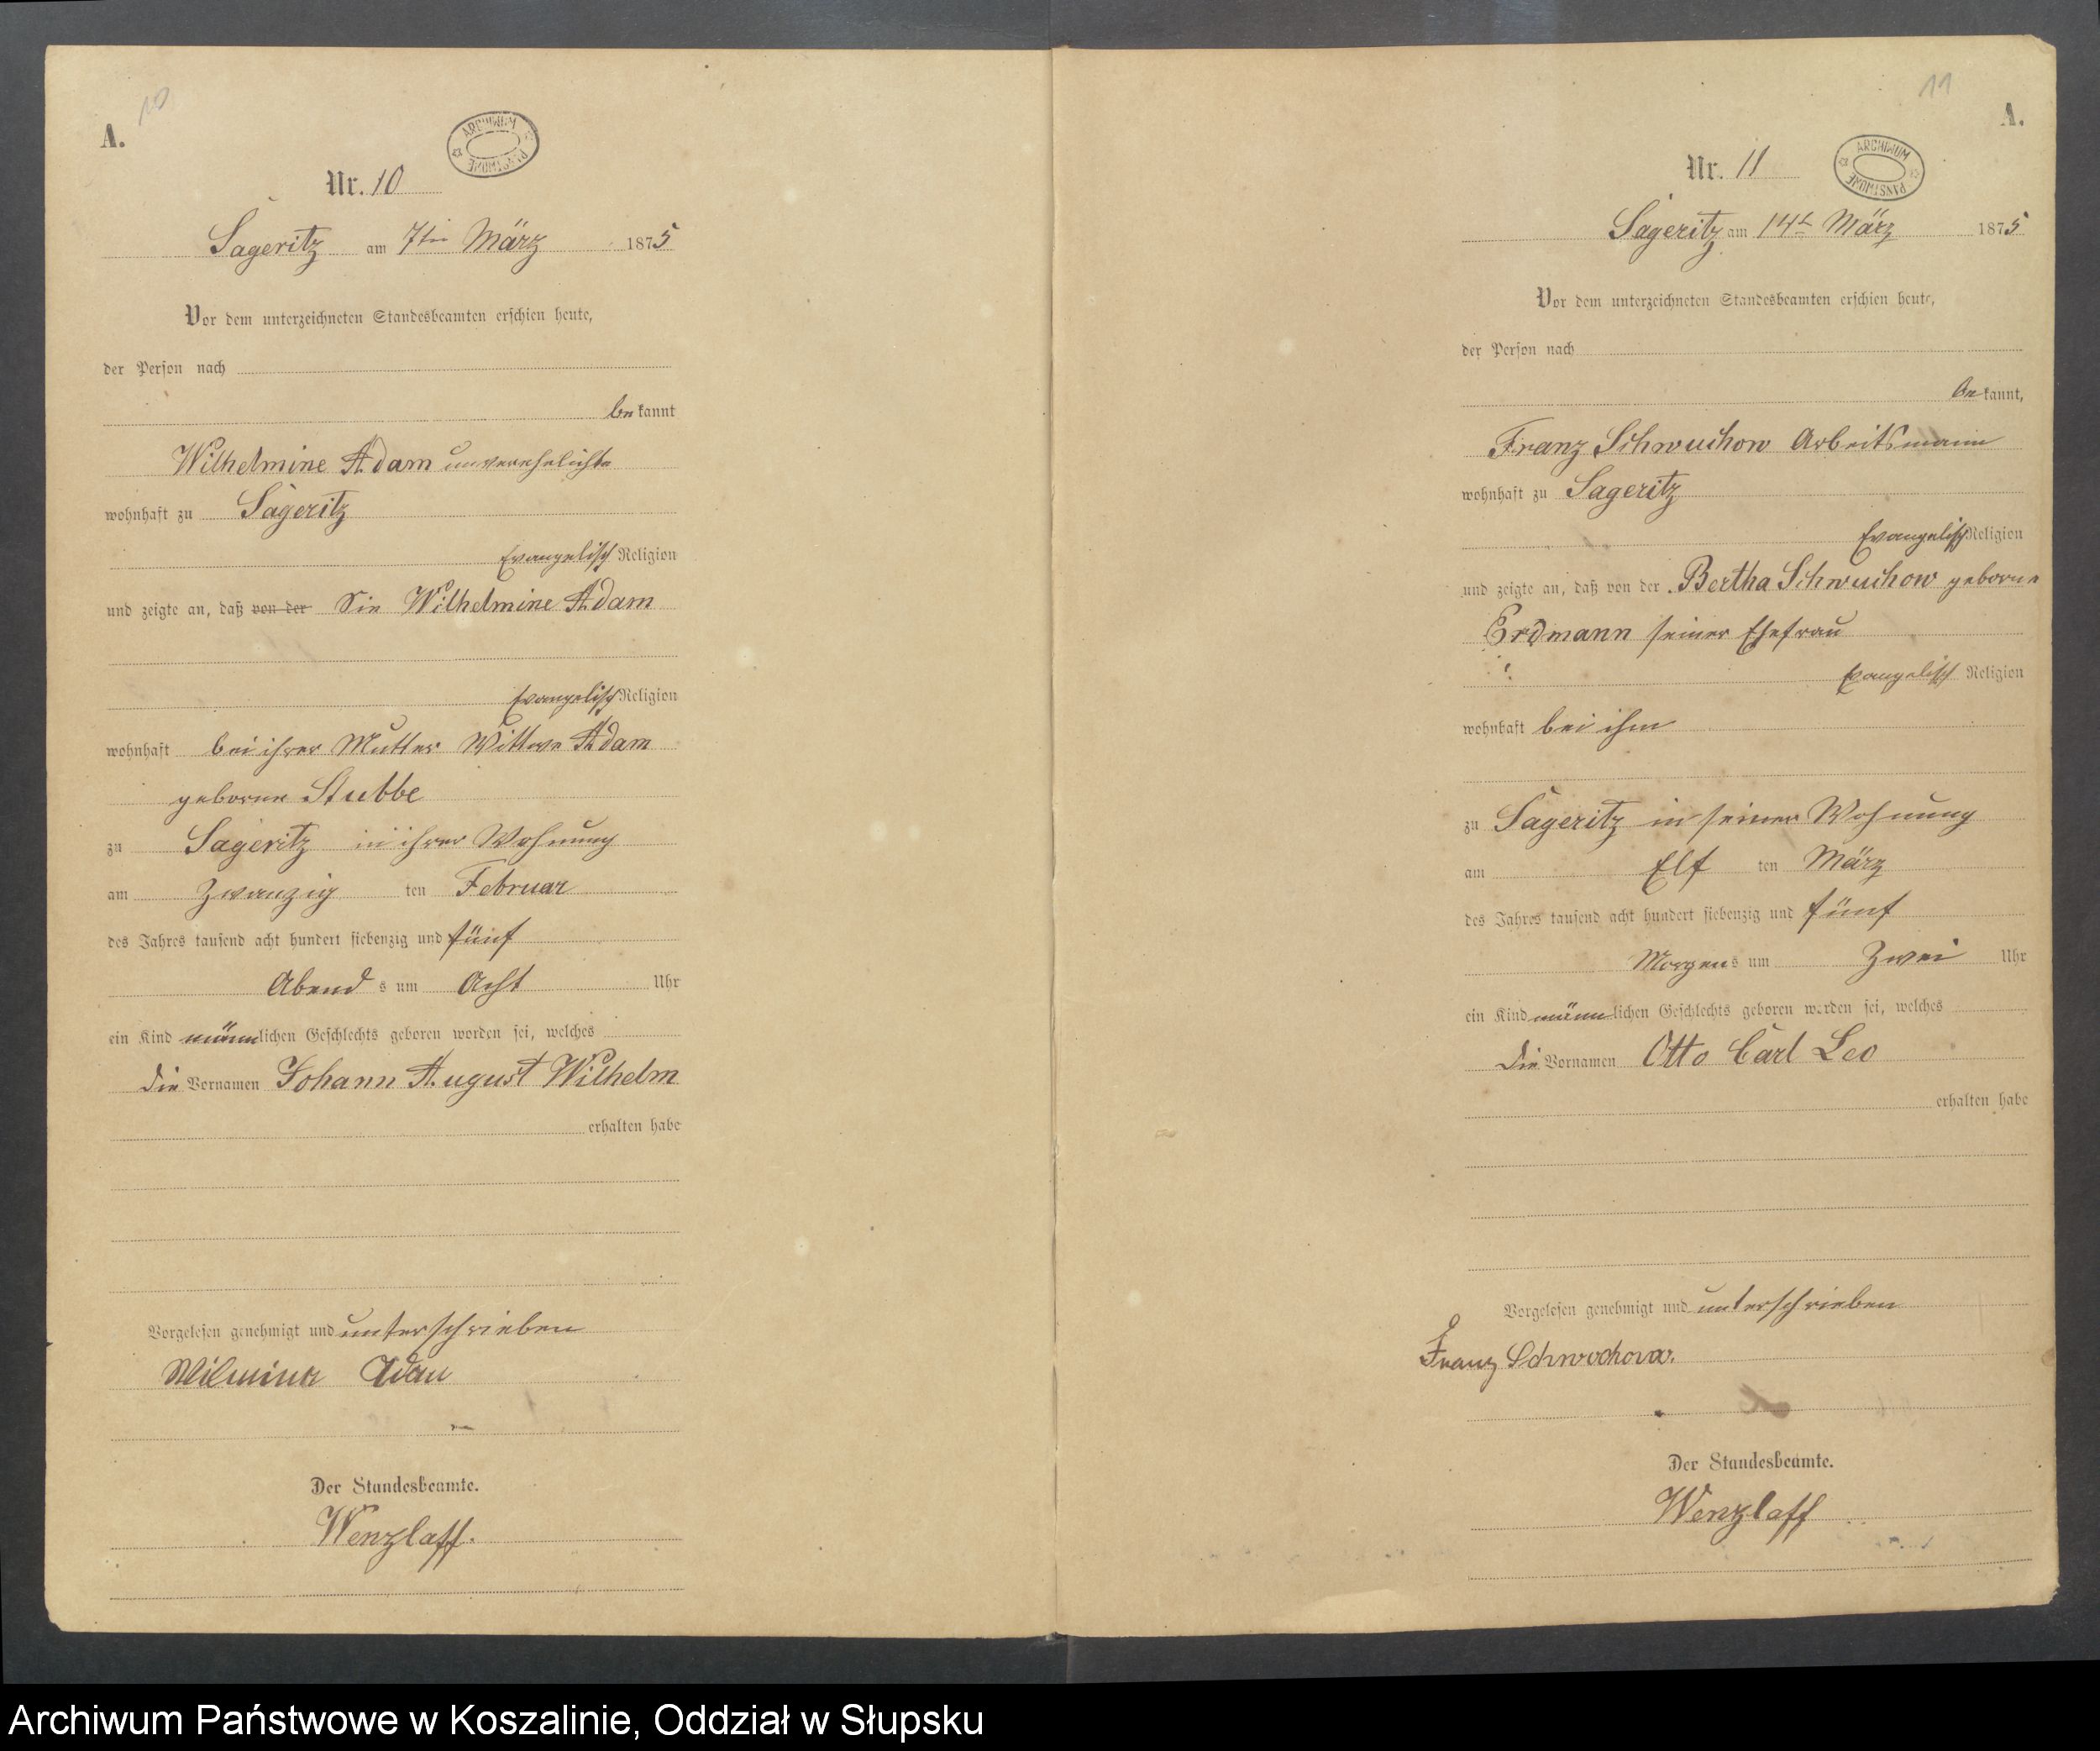 10
A.
ARCHIWUM PAŃSTWOWE
Nr. 10
Sageritz am 7ten März 1875
Vor dem unterzeichneten Standesbeamten erschien heute,
der Person nach
bekannt
Wilhelmine Adam unverehelichte
wohnhaft zu Sageritz
Evangelisch Religion
und zeigte an, daß von der Sie Wilhelmine Adam
Evangelisch Religion
wohnhaft bei ihrer Mutter Wittwe Adam
geborne Stubbe
zu Sageritz in ihrer Wohnung
am Zwanzig ten Februar
des Jahres tausend acht hundert siebenzig und fünf
Abend s um Acht Uhr
ein Kind männlichen Geschlechts geboren worden sei, welches
die Vornamen Johann August Wilhelm
erhalten habe
Vorgelesen genehmigt und unterschrieben
Wilmine Adam
Der Standesbeamte.
Wenzlaff.
11
A.
ARCHIWUM PAŃSTWOWE
Nr. 11
Sageritz am 14t März 1875
Vor dem unterzeichneten Standesbeamten erschien heute,
der Person nach
bekannt,
Franz Schwuchow Arbeitsmann
wohnhaft zu Sageritz
Evangelisch Religion
und zeigte an, daß von der Bertha Schwuchow geborne
Erdmann seiner Ehefrau
Evangelisch Religion
wohnhaft bei ihm
zu Sageritz in seiner Wohnung
am Elf ten März
des Jahres tausend acht hundert siebenzig und fünf
Morgens um Zwei Uhr
ein Kind männlichen Geschlechts geboren worden sei, welches
die Vornamen Otto Carl Leo
erhalten habe
Vorgelesen genehmigt und unterschrieben
Franz Schwochow.
Der Standesbeamte.
Wenzlaff
Archiwum Państwowe w Koszalinie, Oddział w Słupsku